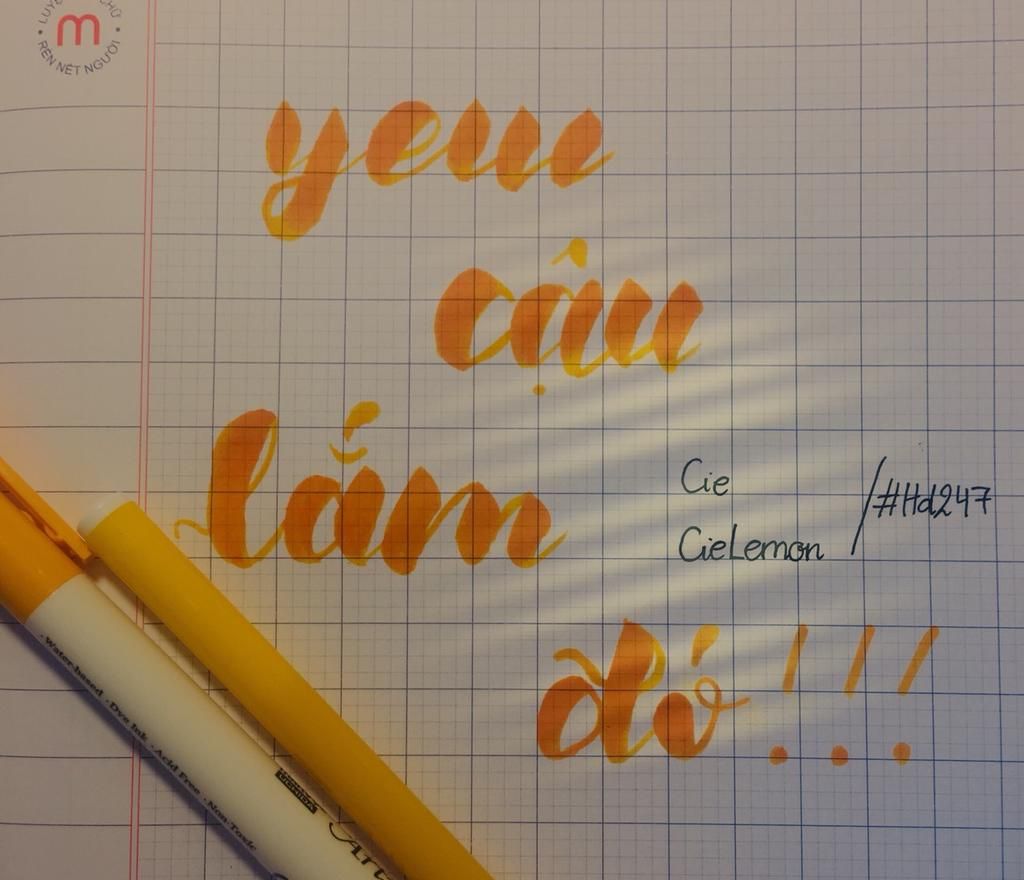 RÈN NÉT NGƯỜI
m
yeuu
cậu
lắm
Cie
CieLemon
/#Hd247
đó!!!
·Water-based ·Dye Ink ·Acid Free ·Non-Toxic